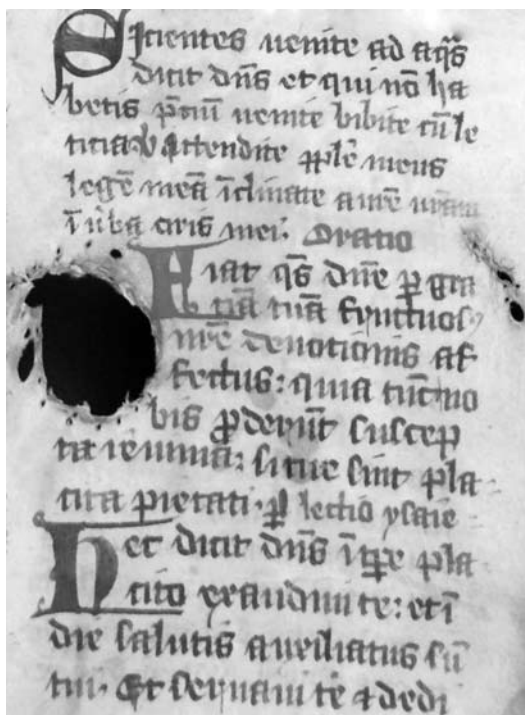 Sicientes uenite ad aq̃s
dicit dñs et qui nõ ha
betis p̃ciũ uenite bibite cũ le
ticia ꝟ Attendite pp̃le meus
legẽ meã ĩclinate aurẽ urãm
ĩ ũba oris mei. Oratio
Fiat q̃s dñe ꝑ gra
ciã tuã fructuosꝰ
nr̃e deuotionis af
fectus: quia tũc no
bis ꝓderũt suscep
ta ieiunia: si tue sint pla
cita pietati. ꝑ lectio ysaie
Hec dicit dñs ĩ tp̃re pla
cito exaudiui te: et ĩ
die salutis auxiliatus sũ
tui. Et seruaui te ⁊ dedi